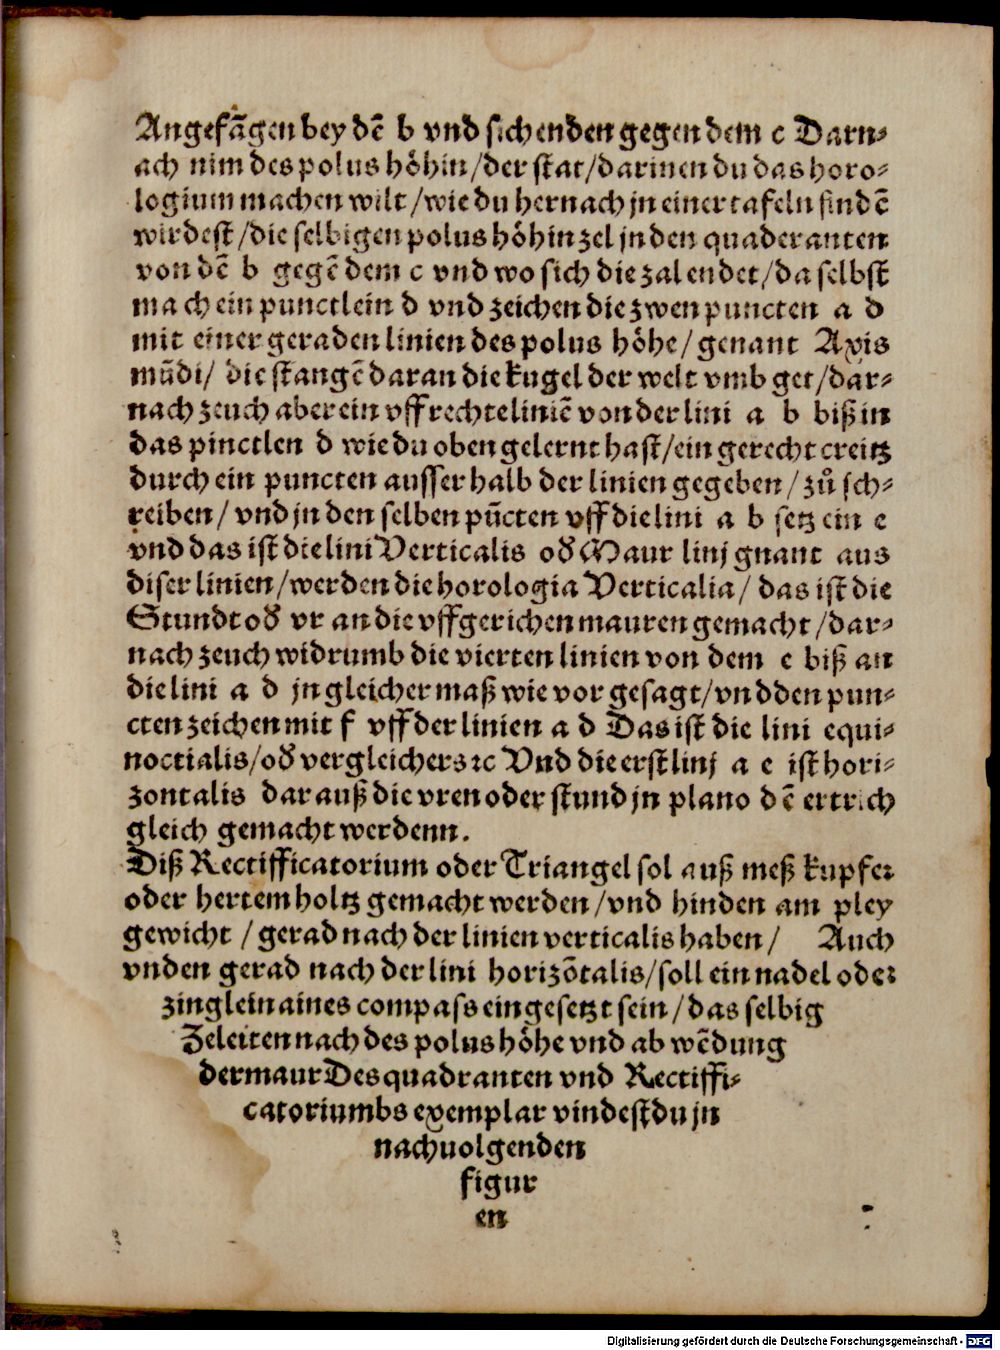 Angefãgen bey dẽ b vnd sich enden gegen dem c Darn⸗
ach nim des polus höhin/der stat/darinen du das horo⸗
logium machen wilt/wie du hernach jn einer tafeln findẽ
wirdest/die selbigen polus höhin zel jn den quaderanten
von dẽ b gegẽ dem c vnd wo sich die zal endet/da selbst
mach ein punctlein d vnd zeichen die zwen puncten a d
mit einer geraden linien des polus höhe/genant Axis
mũdi/ die stangẽ daran die kugel der welt vmb get/dar⸗
nach zeuch aber ein vffrechte liniẽ von der lini a b biß in
das pinctlen d wie du oben gelernt hast/ein gerecht creitz
durch ein puncten ausserhalb der linien gegeben/zů sch⸗
reiben/vnd jn den selben pũcten vff die lini a b setz ein e
vnd das ist die lini Verticalis oď Maur linj gnant aus
diser linien/werden die horologia Verticalia/ das ist die
Stundt oď vr an die vffgerichen mauren gemacht/dar⸗
nach zeuch widrumb die vierten linien von dem e biß an
die lini a d jn gleicher maß wie vor gesagt/vnd den pun⸗
cten zeichen mit f vff der linien a d Das ist die lini equi⸗
noctialis/oď vergleichers ꝛc Vnd die erst linj a e ist hori⸗
zontalis dar auß die vren oder stund jn plano dẽ ertrich
gleich gemacht werdenn.
Diß Rectifficatorium oder Triangel sol auß meß kupfer
oder hertem holtz gemacht werden/vnd hinden am pley
gewicht /gerad nach der linien verticalis haben/ Auch
vnden gerad nach der lini horizõtalis/soll ein nadel oder
zinglein aines compass eingesetzt sein/das selbig
Zeleiten nach des polus höhe vnd ab wẽdung
der maur Des quadranten vnd Rectiffi⸗
catoriumbs exemplar vindest du jn
nachuolgenden
figur
en
Digitalisierung gefördert durch die Deutsche Forschungsgemeinschaft - DFG